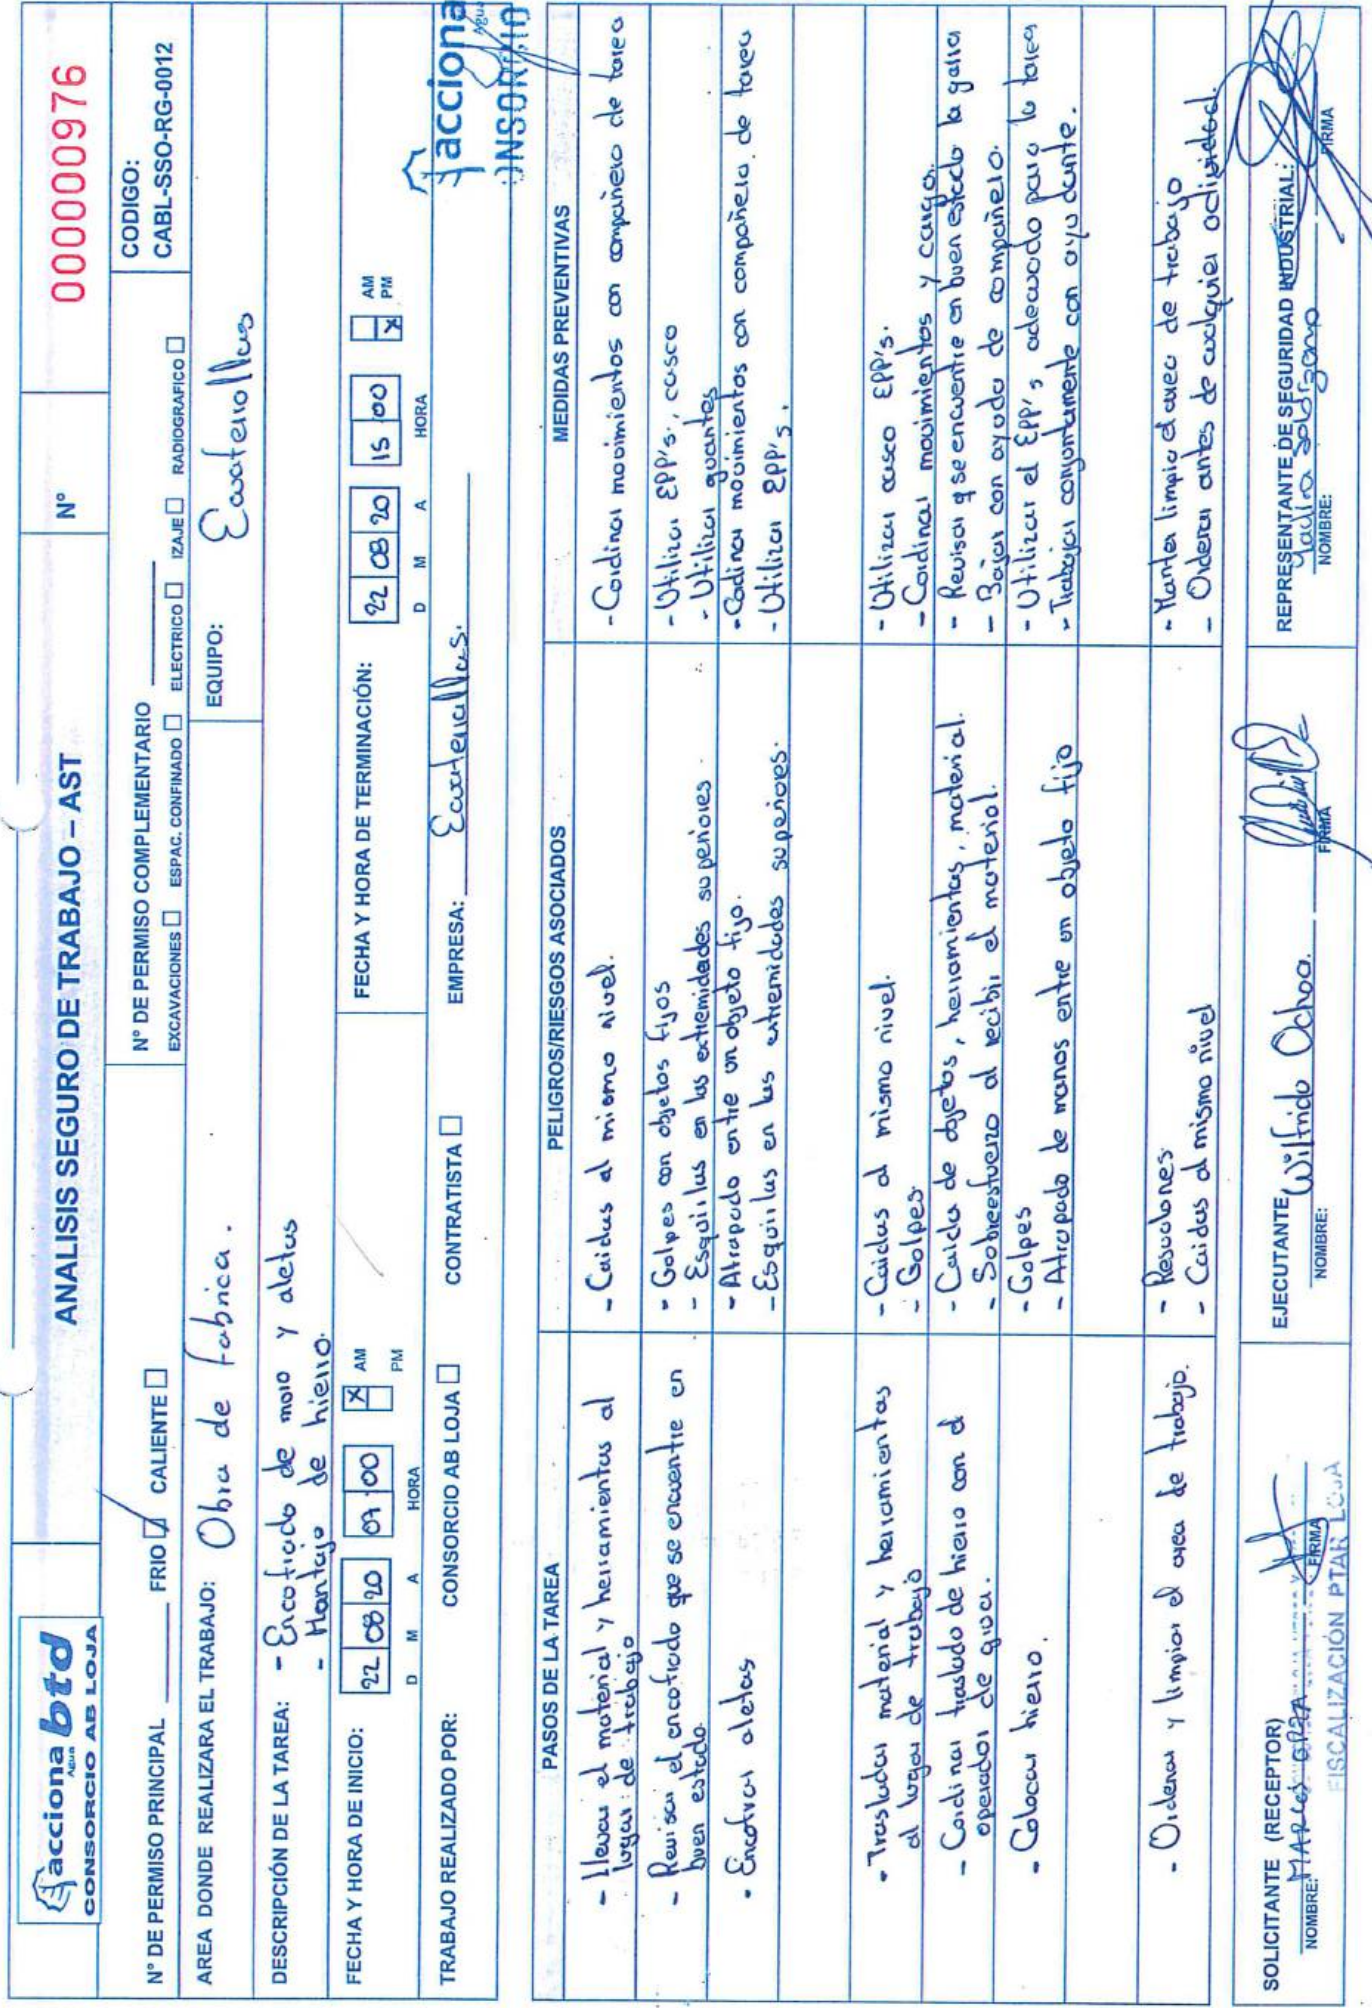 acciona btd
Agua
CONSORCIO AB LOJA
ANALISIS SEGURO DE TRABAJO – AST
N°
000000976
N° DE PERMISO PRINCIPAL
FRIO ☑ CALIENTE ☐
N° DE PERMISO COMPLEMENTARIO
EXCAVACIONES ☐ ESPAC. CONFINADO ☐ ELECTRICO ☐ IZAJE ☐ RADIOGRAFICO ☐
CODIGO:
CABL-SSO-RG-0012
AREA DONDE REALIZARA EL TRABAJO: Obra de fabrica.
EQUIPO:
DESCRIPCIÓN DE LA TAREA: - Encofrado de moro y aletas
- Montajo de hierro.
FECHA Y HORA DE INICIO: 22 08 20 07 00 X AM
PM
D M A HORA
FECHA Y HORA DE TERMINACIÓN: 22 08 20 15 00 AM
X PM
D M A HORA
TRABAJO REALIZADO POR: CONSORCIO AB LOJA ☐ CONTRATISTA ☐ EMPRESA:
acciona
Agua
ONSORCIO
PASOS DE LA TAREA
PELIGROS/RIESGOS ASOCIADOS
MEDIDAS PREVENTIVAS
- Llevar el material y herramientas al
lugar de trabajo
- Caidas al mismo nivel.
- Cordinar movimientos con compañero de tarea
- Revisar el encofrado que se encuentre en
buen estado.
- Golpes con objetos fijos
- Esquirlas en las extremidades superiores
- Utilizar EPP's, casco
- Utilizar guantes
- Encofrar aletas
- Atrapado entre un objeto fijo.
- Esquirlas en las extremidades superiores.
- Codinar movimientos con compañero de tarea
- Utilizar EPP's.
- Trasladar material y herramientas
al lugar de trabajo
- Caidas al mismo nivel.
- Golpes.
- Utilizar casco EPP's.
- Cordinar movimientos y cargo.
- Cordinar traslado de hierro con el
operador de grua.
- Caida de objetos, herramientas, material.
- Sobreesfuerzo al recibir el material.
- Revisar q se encuentre en buen estado la
- Bajar con ayuda de compañero.
- Colocar hierro.
- Golpes
- Atrapado de manos entre un objeto fijo
- Utilizar el EPP's adecuado para la tarea
- Trabajar conjuntamente con ayudante.
- Ordenar y limpiar el area de trabajo.
- Resvalones.
- Caidas al mismo nivel
- Manter limpio el area de trabajo
- Ordenar antes de cualquier actividad.
SOLICITANTE (RECEPTOR)
NOMBRE: FIRMA
FISCALIZACIÓN PTAR LOJA
EJECUTANTE
NOMBRE: Wilfrido Ochoa. FIRMA
REPRESENTANTE DE SEGURIDAD INDUSTRIAL:
NOMBRE: FIRMA